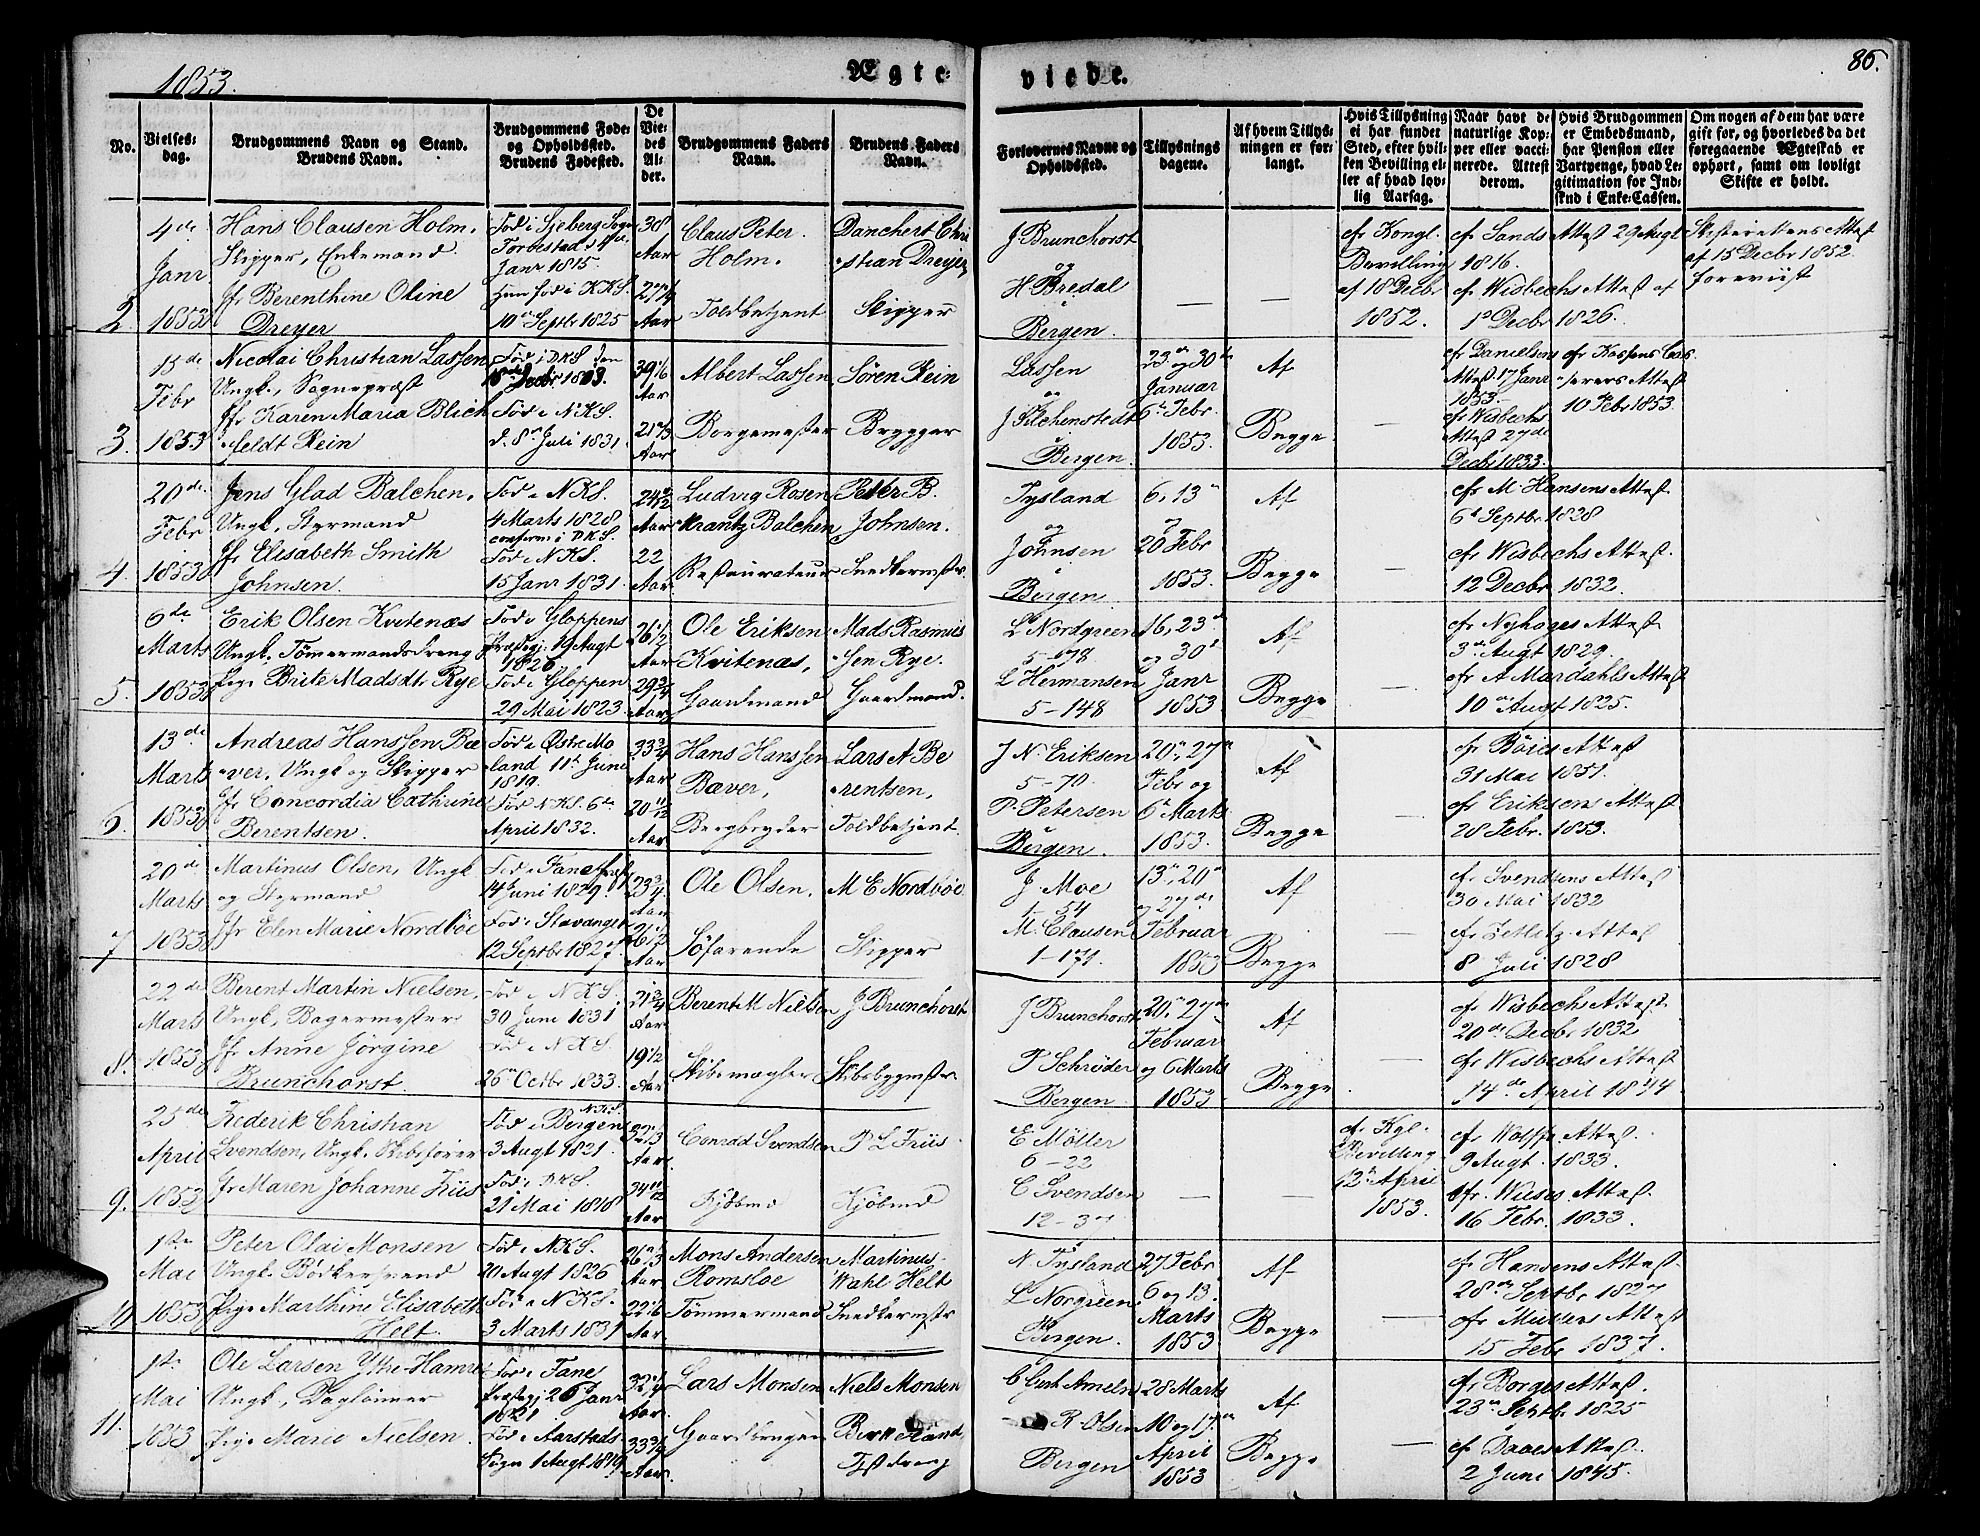 1853.
Ægte-
viede.
86.
No.
Vielses-
dag.
Brudgommens Navn og Stand.
Brudens Navn.
Brudgommens Føde-
og Opholdssted.
Brudens Fødested.
De
Vie-
des
Al-
der.
Brudgommens Faders
Navn.
Brudens Faders
Navn.
Forlovernes Navne og
Opholdssted.
Tillysnings
dagene.
Af hvem Tillys-
ningen er for-
langt.
Hvis Tillysning
ei har fundet
Sted, efter hvil-
ken Bevilling el-
ler af hvad lov-
lig Aarsag.
Naar havt de
naturlige Kop-
per eller vacci-
nerede. Attest
derom.
Hvis Brudgommen
er Embedsmand,
har Pension eller
Vartpenge, hvad Le-
gitimation for Ind-
skud i Enke-Cassen.
Om nogen af dem har være
gift før, og hvorledes da det
foregaaende Ægteskab er
ophørt, samt om lovligt
Skifte er holdt.
2.
4de
Janr
1853
Hans Clausen Holm,
Skipper, Enkemand.
Jfr Berenthine Oline
Dreyer
Fød i Sjeberg Sogn
Torbestad d 4de
Janr 1815.
Hun fød i KKS.
10de Septbr 1825
38
Aar
27 1/4
Aar
Claus Peter
Holm.
Toldbetjent
Danchert Chri
stian Dreyer,
Skipper
J Brunchorst
og
H Bredal
i
Bergen.
—
—
cfr Kongl.
Bevilling
af 18 Decbr
1852.
cfr Sands Attest 29 Augt
1816.
cfr Wisbechs Attest af
1ste Decbr 1826.
Skifterettens Attest
af 15 Decbr 1852
foreviist
3.
15de
Febr
1853
Nicolai Christian Lassen
Ungk., Sognepræst
Jfr Karen Maria Blich
feldt Rein
Fød i DKS den
18de Decbr 1813.
Fød i NKS.
d. 8de Juli 1831.
39 1/6
Aar
21 2/3
Aar
Albert Lassen
Borgemester
Sören Rein
Brygger
Lassen
og
J Fichenstedt
i
Bergen.
23de og 30de
Januar
6te Febr.
1853.
Af
Begge.
cfr Danielsens
Attest 17 Janr
1853.
cfr Wisbechs
Attest 27de
Decbr 1833.
cfr Kassens Cas
serers Attest
10 Febr 1853.
4.
20de
Febr
1853
Jens Glad Balchen,
Ungk., Styrmand
Jfr Elisabeth Smith
Johnsen.
Fød i NKS.
4 Marts 1828
confirm i DKS.
Fød i NKS.
15 Janr 1831.
Aar
22
Aar
Ludvig Rosen
krantz Balchen
Restaurateur
Peter B.
Johnsen.
Snedkermstr.
Tysland
og
Johnsen
i
Bergen.
6, 13de
og
20 Febr
1853.
Af
Begge
—
cfr M. Hansens Attest
6te Septbr 1828
cfr Wisbechs Attest
12 Decbr 1832.
5.
6de
Marts
1853
Erik Olsen Kvitenæs
Ungk. Tømermandsdreng
Pige Brite Madsdtr Rye
Fød i Gloppens
Præstegj. 19 Augt
1826.
Fød i Gloppen
29 Mai 1823.
26 1/2
Aar
29 3/4
Aar
Ole Eriksen
Kvitenæs,
Gaardmand
Mads Rasmus
sen Rye.
Gaardmand.
L Nordgreen
5-678
L Hermansen
5-148
16, 23de
og 30te
Janr
1853
Af
Begge
—
cfr Nyhoges Attest
3de Augt 1829.
cfr A Mardahls Attest
10de Augt 1825.
6.
13de
Marts
1853
Andreas Hanssen Bæ
ver, Ungk og Skipper
Jfr Concordia Cathrine
Berentsen.
Fød i Østre Mo
land 11te Juni
1819.
Fød NKS 6te
April 1832.
33 3/4
Aar
20 11/12
Aar
Hans Hanssen
Bæver,
Bergbryder
Lars A Be
rentsen,
Toldbetjent.
J N. Eriksen
5-70
P. Petersen
Bergen.
20de, 27de
Febr og
6te Marts
1853.
Af
Begge
—
cfr Böies Attest
31 Mai 1851.
cfr Eriksens Attest
28 Febr. 1853.
7
20de
Marts
1853
Martinus Olsen, Ungk
og Styrmand
Jfr Elen Marie Nordböe
Fød i Fane Præst
14 Juni 1829.
Fød i Stavanger
12 Septbr 1827.
23 3/4
Aar
Aar
Ole Olsen,
Søfarende
M E Nordböe
Skipper
J. Moe
1-54
M. Clausen
1-171.
13de, 20de
og 27de
Februar
1853
Af
Begge
—
cfr Svendsens Attest
30 Mai 1832
cfr Zetlitz Attest
8 Juli 1828
8.
22de
Marts
1853
Berent Martin Nielsen,
Ungk, Bagermester
Jfr Anne Jörgine
Brunchorst.
Fød i NKS.
30 Juni 1831
Fød i NKS.
26de Octbr 1833.
21 3/4
Aar
19 1/2
Aar
Berent M Nielsen
Skibsmægler
J Brunchorst
Skibsbygmstr
J Brunchorst
P Schrøder
Bergen.
20de, 27de
Februar
og 6 Marts
1853
Af
Begge
—
cfr Wisbechs Attest.
20de Decbr 1832
cfr Wisbechs Attest
14de April 1844
9.
25de
April
1853
Frederik Christian
Svendsen, Ungk. Skibsfører
Jfr Maren Johanne Friis
Fød i Bergen
NKS.
3 Augt 1821.
Fød i DKS.
21 Mai 1818
Aar.
34 11/12
Aar
Conrad Svendsen
Kjøbmd
P L Friis.
Kjøbmd
E Möller
6-22
C Svendsen
12-37
—
—
cfr Kgl.
Bevilling
12te April
1853.
cfr Wolffs Attest.
9 Augt. 1833.
cfr. Wieses Attest.
16 Febr. 1833.
10
1ste
Mai
1853
Peter Olai Monsen
Ungk. Bödkersvend
Pige Marthine Elisabeth
Helt.
Fød i NKS.
20 Augt 1826
Fød i NKS.
3 Marts 1831
26 2/3
Aar
22 1/6
Aar
Mons Andersen
Romsloe
Tømmermand
Martinus
Wahl Helt
Snedkermstr
N Tysland
L Norgreen
Bergen.
27 Febr
6 og 13.
Marts
1853
Af
Begge
—
cfr Hansens Attest
28de Septbr 1827
cfr Mussens Attest
15 Febr 1837.
11.
1ste
Mai
1853
Ole Larsen Ytre-Hamre
Ungk, Dagleiner
Pige Marie Nielsen.
Fød i Fane
Præstegj 26 Janr
1821.
Fød i Aarstads
Sogn 1 Augt 1819
32 1/4
Aar.
33 3/4
Aar.
Lars Monsen
Niels Monsen
Birkeland,
C Gert Ameln
R. Olsen
Bergen
28 Marts
10 og 17de
April
1853
Af
Begge
—
cfr Borges Attest.
23de Septbr. 1825
cfr Daaes Attest.
2 Juni 1845.